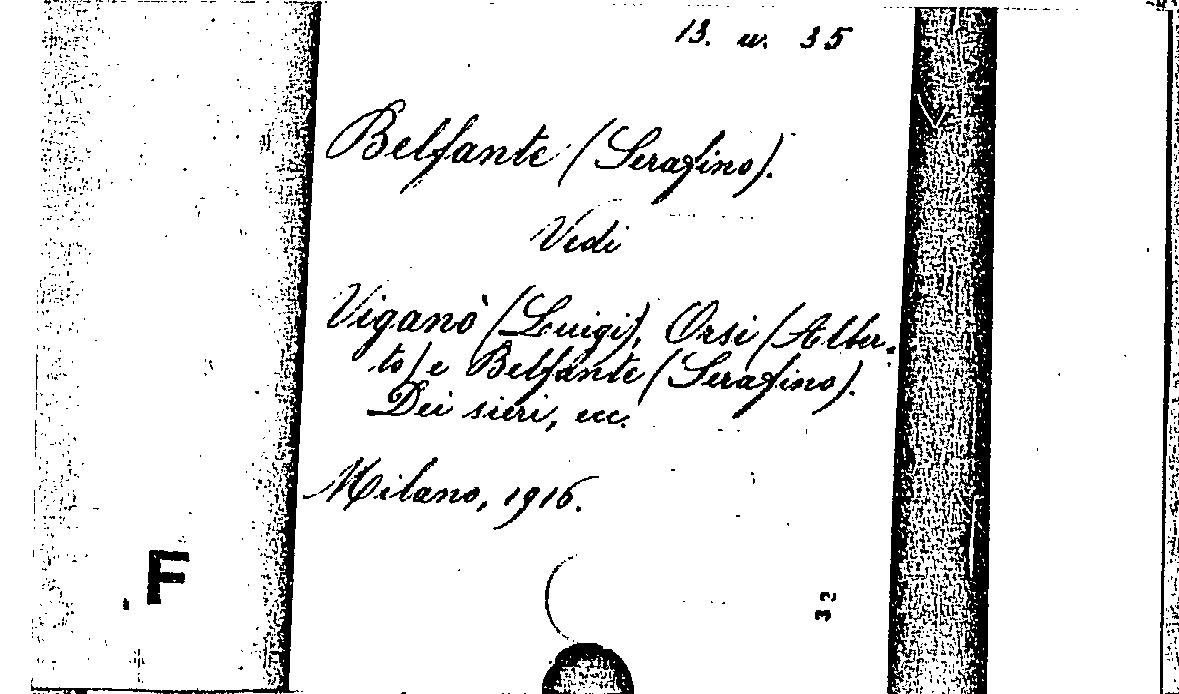 13. w. 35
Belfante (Serafino).
Vedi
Viganò (Luigi), Orsi (Alber-
to) e Belfante (Serafino).
Dei sieri, ecc.
Milano, 1916.
F
32